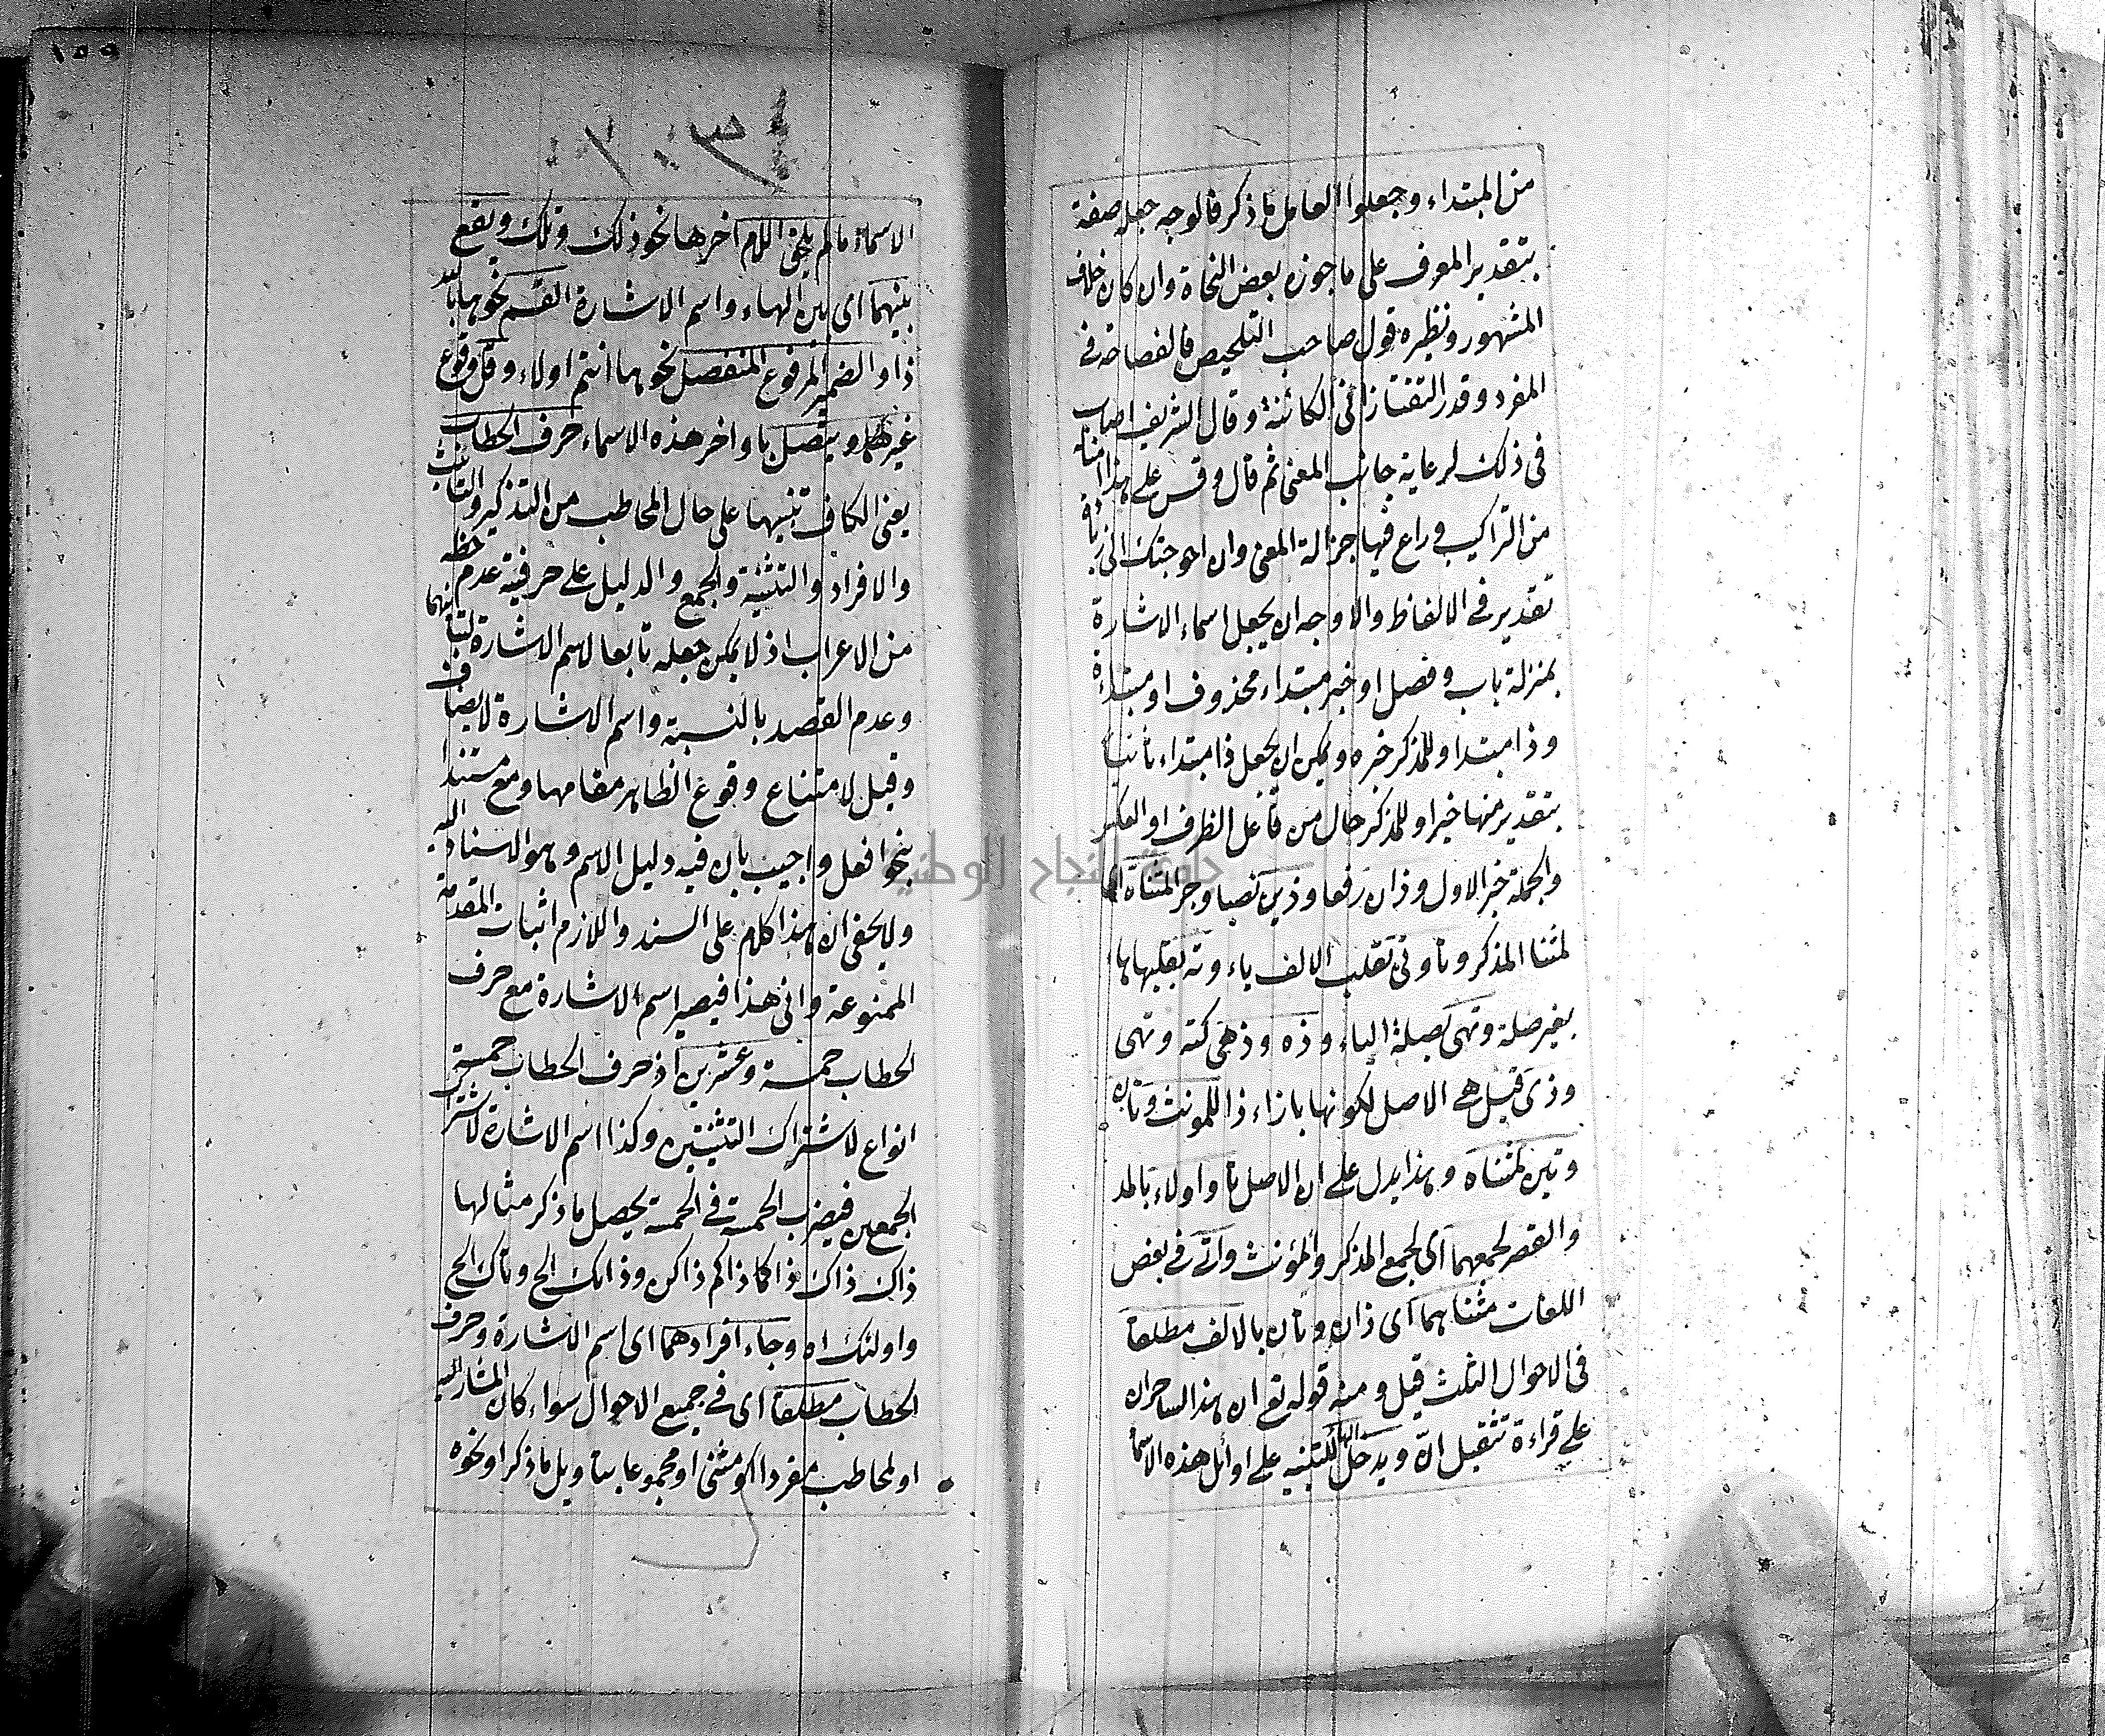 من المبتداء وجعلوا العامل ما ذكر فالوجه جعله صفة
بتقدير المعرف على ما جوزه بعض النحاة وان كان خلاف
المشهور ونظيره قول صاحب التلخيص فالفصاحة في
المفرد وقدر التفتازاني الكائنة وقال الشريف اصاب
في ذلك لرعاية جانب المعنى ثم قال وقس على هذا امثاله
من التراكيب وراع فيها جزالة المعنى وان احوجتك الى زيادة
تقدير في الالفاظ والاوجه ان يجعل اسماء الاشارة
بمنزلة باب وفصل او خبر مبتداء محذوف او مبتداءة
وذا مبتدا وللمذكر خبره ويمكن ان يجعل ذا مبتداء ثانيا
بتقدير منها خبرا وللمذكر حال من فاعل الظرف او العكس
والجملة خبر الاول وذان رفعا وذين نصبا وجرا لمثناه اى
لمثنا المذكر وتا وتى تقلب الالف ياء وته بقلبها ها
بغير صلة وتهى بصلة الياء وذه وذهى كته وتهى
وذى قيل هي الاصل لكونها بازاء ذا للمونث وتان
وتين لمثناه وهذا يدل على ان الاصل تا واولاء بالمد
والقصر لجمعهما اى لجمع المذكر والمؤنث واتى في بعض
اللغات مثناهما اى ذان وتان بالالف مطلقا
في الاحوال الثلث قيل ومنه قوله تع ان هذا الساحران
على قراءة تثقيل انّ ويدخل الهاء للتنبيه على اوائل هذه الاسما
١٥٩
الاسماء ما لم يلحق اللام اخرها نحو ذلك وتلك ويقع
بينهما اى بين الهاء واسم الاشارة القسم نحو ها بالله
ذا والضمير المرفوع المنفصل نحو ها انتم اولاء وقل وقوع
غيرهما ويتصل باواخر هذه الاسماء حرف الخطاب
يعنى الكاف تنبيها على حال المخاطب من التذكير والتانيث
والافراد والتثنية والجمع والدليل على حرفية عدم حظه
من الاعراب اذ لا يمكن جعله تابعا لاسم الاشارة لتباينهما
وعدم القصد بالنسبة واسم الاشارة لا يضاف
وقيل لامتناع وقوع الظاهر مقامها ومع مستندا
بنحو افعل واجيب بان فيه دليل الاسم وهو الاسناد اليه
ولا يخفى ان هذا كلام على السند واللازم اثبات المقدمة
الممنوعة وانى هذا فيصير اسم الاشارة مع حرف
الخطاب خمسة وعشرين اذ حرف الخطاب خمسة
انواع لاشتراك التثنيتين وكذا اسم الاشارة لاشتراك
الجمعين فيضرب الخمسة في الخمسة يحصل ما ذكر مثالها
ذاك ذاك ذاكما ذاكم ذاكن وذانك الخ وتاك الخ
واولئك اه وجاء افرادهما اى اسم الاشارة وحرف
الخطاب مطلقا اى في جميع الاحوال سواء كان المشار اليه
او المخاطب مفردا او مثنى او مجموعا بتاويل ما ذكر او نحوه
جامعة النجاح الوطنية